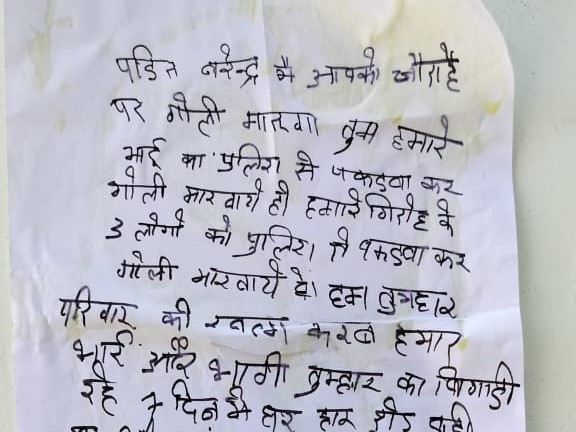 पंडित नरेन्द्र मै आपको चौराहे
पर गोली मारूगा तुम हमारे
भाई का पुलिस से पकडवा कर
गोली मारवाये हो हमारे गिरोह के
3 लोगो को पुलिस से पकडवा कर
गोली मारवाये हो हम तुमहार
परिवार की खत्म करब हमार
भाई और भागी तुम्हार का बिगाड़ी
रहे 7 दिन मे घर